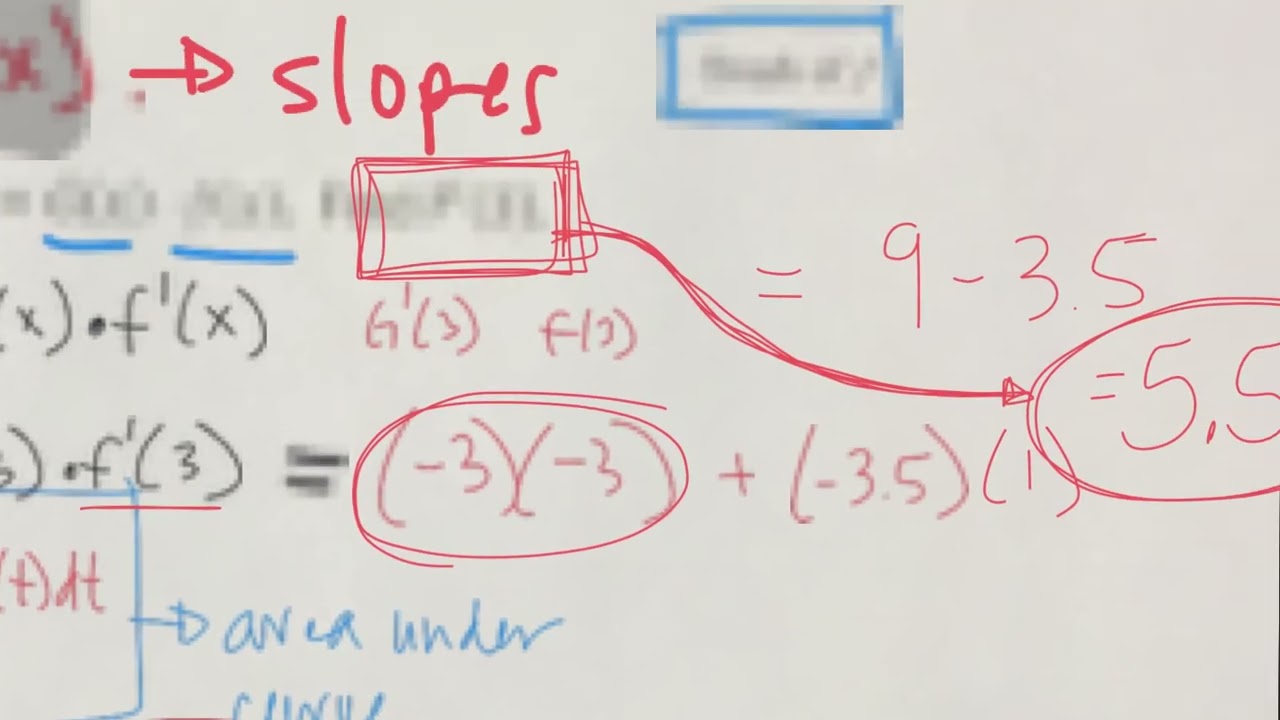 x) → slopes
(x)•f'(x) G'(3) f(3) = 9 - 3.5
) • f'(3) = (-3)(-3) + (-3.5)(1) = 5.5
(t)dt
→ area under
curve